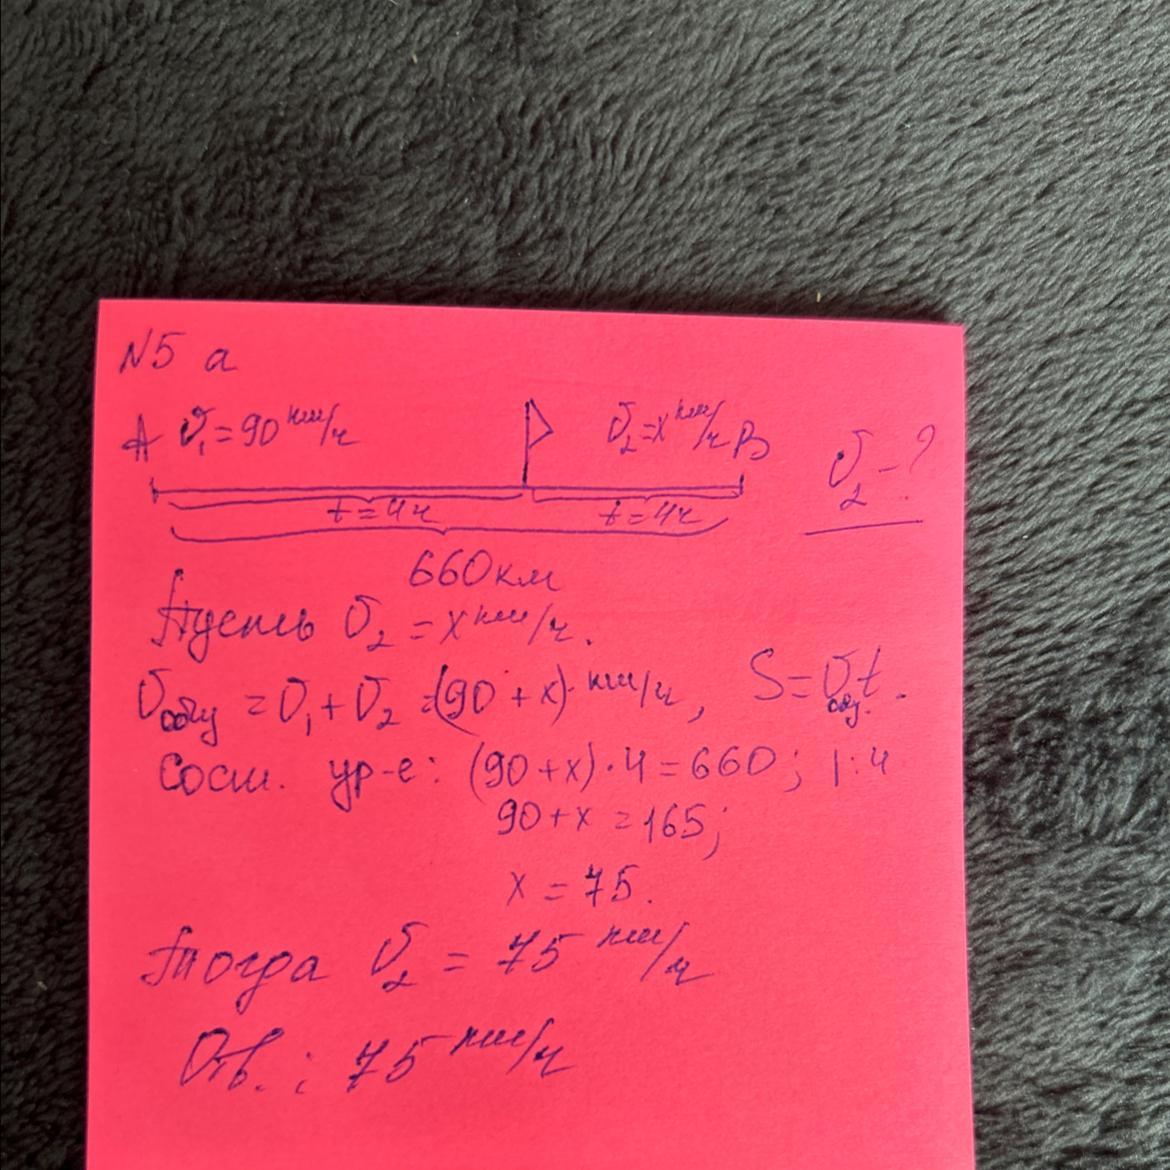 N5 а
A V₁=90 км/ч V₂=x км/ч B V₂-?
t=4ч t=4ч
660 км
Пусть V₂ = x км/ч.
Vобщ = V₁ + V₂ = (90 + x) км/ч, S=Vобщ.t.
Сост. ур-е: (90+x)·4=660; |:4
90+x=165;
x = 75.
Тогда V₂ = 75 км/ч
Отв.: 75 км/ч